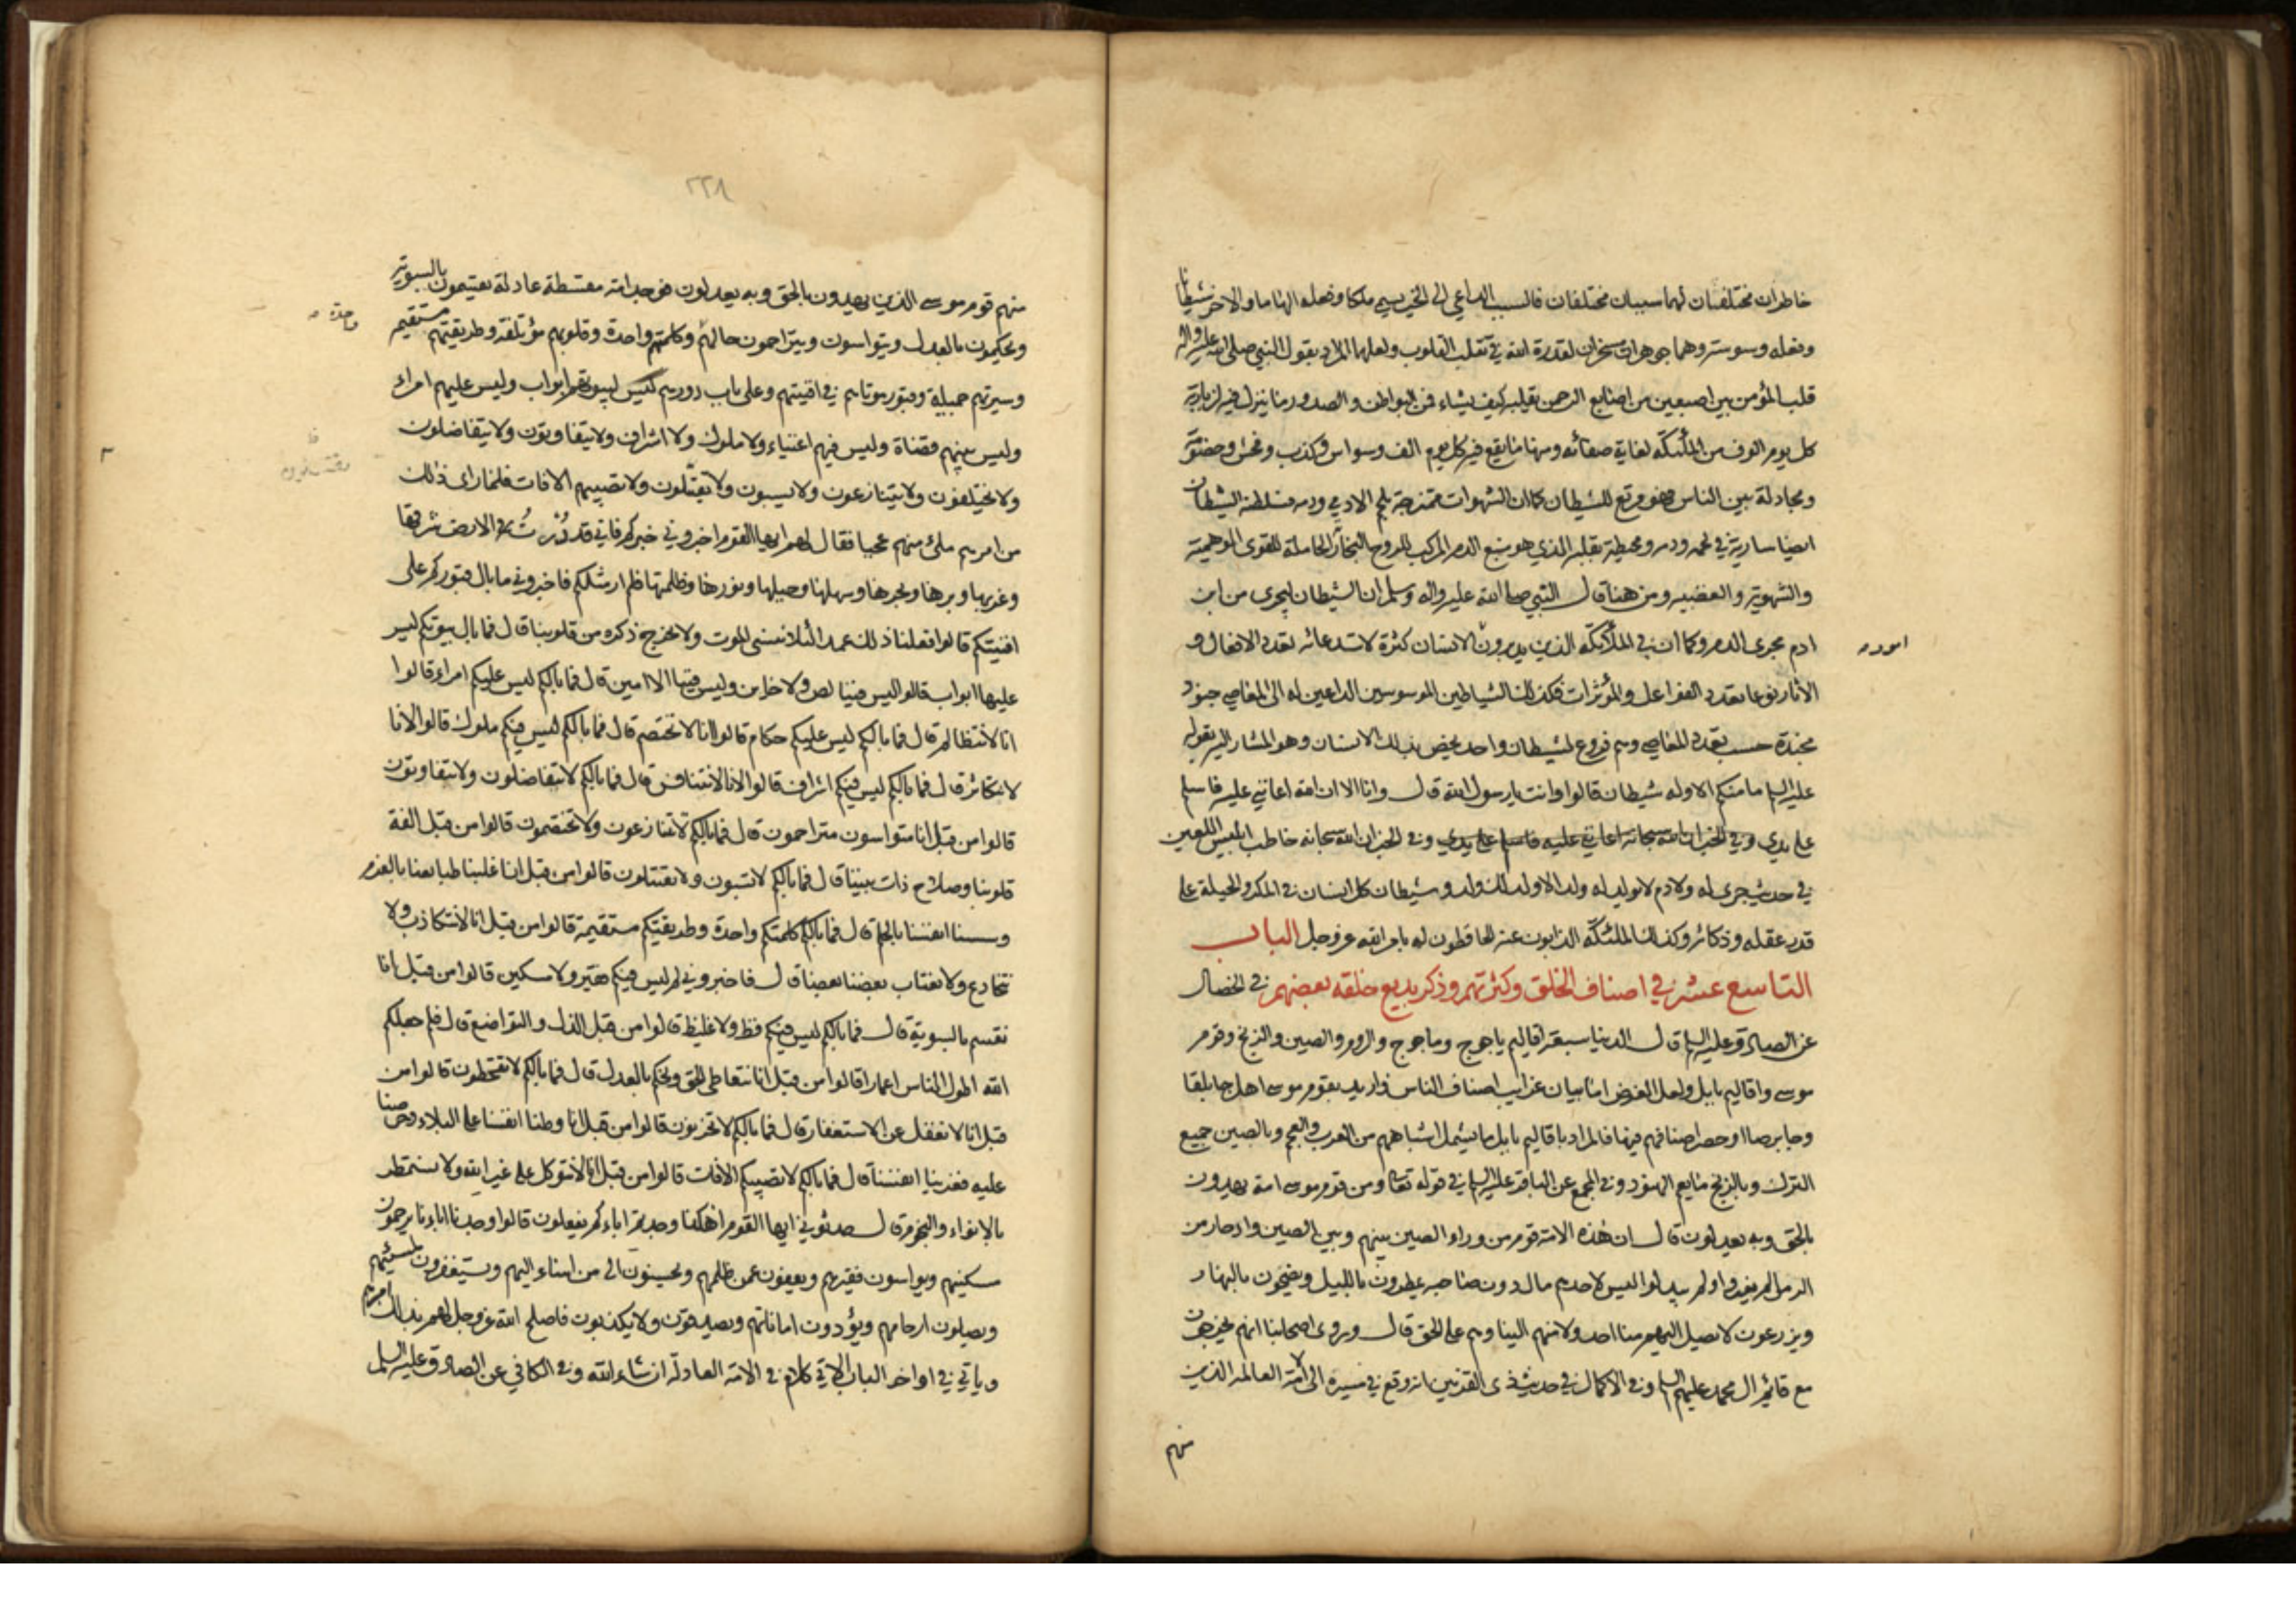 خاطران مختلفان لهما سببان مختلفان فالسبب الداعي الى الخير يسمى ملكا وفعله الهاما والاخر شيطانا
وفعله وسوسة وهما جوهران مسخران لقدرة الله في تقلب القلوب ولعلهما المراد بقول النبي صلى الله عليه واله
قلب المؤمن بين اصبعين من اصابع الرحمن يقلبه كيف يشاء فمن البواطن والصدور ما ينزل فيه لزيارته
كل يوم الوف من الملئكة لغاية صفائه ومنها ما يقع فيه كل يوم الف وسواس وكذب وفحش وخصومة
ومجادلة بين الناس فهو مرتع للشيطان كما ان الشهوات ممتزجة بلحم الادمي ودمه فسلطنة الشيطان
ايضا سارية في لحمه ودمه ومحيطة بقلبه الذي هو منبع الدم المركب للروح البخار الحاملة للقوى الوهمية
والشهوية والغضبية ومن هنا قال النبي صلى الله عليه واله وسلم ان الشيطان ليجرى من ابن
ادم مجرى الدم وكما ان في الملائكة الذين يدبرون الانسان كثرة لاستدعائه تعدد الافعال و
امور م
الاثار نوعا تعدد الفواعل والمؤثرات فكذلك الشياطين الموسوسين الداعين له الى المعاصي جنود
مجندة حسب تعدد المعاصي وهم فروع لشيطان واحد يختص بذلك الانسان وهو المشار اليه بقوله
عليه السلم ما منكم الا وله شيطان قالوا وانت يا رسول الله قال وانا الا ان الله اعانني عليه فاسلم
على يدي وفي الخبر ان الله سبحانه اعانني عليه فاسلم على يدي وفي الخبر ان الله سبحانه خاطب ابليس اللعين
في حديث جرى له ولادم لا يولد له ولد الا ولد لك ولد وشيطان كل انسان في المكر والحيلة على
قدر عقله وذكائه وكذلك الملئكة الذابون عنه الحافظون له بامر الله عز وجل الباب
التاسع عشر في اصناف الخلق وكثرتهم وذكر بديع خلقه بعضهم في الخصال
عن الصادق عليه السلم قال الدنيا سبعة اقاليم ياجوج وماجوج والروم والصين والزنج وقوم
موسى واقاليم بابل ولعل الغرض اما بيان غرايب اصناف الناس فاريد بقوم موسى اهل جابلقا
وجابرصا او حصر اصنافهم فيها فالمراد باقاليم بابل ما يشمل اشباههم من العرب والعجم وبالصين جميع
الترك وبالزنج ما يعم الهنود وفي المجمع عن الباقر عليه السلم في قوله تعالى ومن قوم موسى امة يهدون
بالحق وبه يعدلون قال ان هذه الامة قوم من وراء الصين بينهم وبين الصين واد جار من
الرمل لم يغيروا ولم يبدلوا ليس لاحدهم مال دون صاحبه يمطرون بالليل ويضحون بالنهار
ويزرعون لا يصل اليهم منا احد ولا منهم الينا وهم على الحق قال وروى اصحابنا انهم يخرجون
مع قائم ال محمد عليهم السلم وفي الاكمال في حديث ذى القرنين انه وقع في مسيره الى الامة العالمة الذين
منهم
٢٢٨
منهم قوم موسى الذين يهدون بالحق وبه يعدلون فوجد امة مقسطة عادلة يقتسمون بالسوية
ويحكمون بالعدل ويتواسون ويتراحمون حالهم وكلمتهم واحدة وقلوبهم مؤتلفة وطريقتهم مستقيمة
واحدة م
وسيرتهم جميلة وقبور موتاهم في افنيتهم وعلى باب دورهم ليس لبيوتهم ابواب وليس عليهم امراء
وليس بينهم قضاة وليس فيهم اغنياء ولا ملوك ولا اشراف ولا يتفاوتون ولا يتفاضلون
ولا يختلفون ولا يتنازعون ولا يسبون ولا يقتلون ولا تصيبهم الافات فلما راى ذلك
من امرهم ملئ منهم عجبا فقال لهم ايها القوم اخبروني خبركم فاني قد دُرْتُ في الارض شرقها
وغربها وبرها وبحرها وسهلها وجبلها ونورها وظلمتها فلم ار مثلكم فاخبروني ما بال قبوركم على
افنيتكم قالوا فعلنا ذلك عمدا لئلا ننسى الموت ولا يخرج ذكره من قلوبنا قال فما بال بيوتكم ليس
عليها ابواب قالوا ليس فينا لص ولا خائن وليس فينا الا امين قال فما بالكم ليس عليكم امراء قالوا
انا لا نتظالم قال فما بالكم ليس عليكم حكام قالوا انا لا نختصم قال فما بالكم ليس فيكم ملوك قالوا لانا
لا نتكاثر قال فما بالكم ليس فيكم اشراف قالوا لانا لا نتنافس قال فما بالكم لا تتفاضلون ولا تتفاوتون
قالوا من قبل انا متواسون متراحمون قال فما بالكم لا تتنازعون ولا تختصمون قالوا من قبل الفة
قلوبنا وصلاح ذات بيننا قال فما بالكم لا تسبون ولا تقتتلون قالوا من قبل انا غلبنا طبايعنا بالعزم
وسسنا انفسنا بالحلم قال فما بالكم كلمتكم واحدة وطريقتكم مستقيمة قالوا من قبل انا لا نتكاذب ولا
نتخادع ولا يغتاب بعضنا بعضا قال فاخبروني لم ليس فيكم فقير ولا مسكين قالوا من قبل انا
نقسم بالسوية قال فما بالكم ليس فيكم فظ ولا غليظ قالوا من قبل الذل والتواضع قال فلم جعلكم
الله اطول الناس اعمارا قالوا من قبل انا نتعاطى الحق ونحكم بالعدل قال فما بالكم لا تقحطون قالوا من
قبل انا لا نغفل عن الاستغفار قال فما بالكم لا تحزنون قالوا من قبل انا وطنا انفسنا على البلاء وحرصنا
عليه فعزينا انفسنا قال فما بالكم لا تصيبكم الافات قالوا من قبل انا لا نتوكل على غير الله ولا نستمطر
بالانواء والنجوم قال حدثوني ايها القوم اهكذا وجدتم اباءكم يفعلون قالوا وجدنا اباءنا يرحمون
مسكينهم ويواسون فقيرهم ويعفون عمن ظلمهم ويحسنون الى من اساء اليهم ويستغفرون لمسيئهم
ويصلون ارحامهم ويؤدون اماناتهم ويصدقون ولا يكذبون فاصلح الله عز وجل لهم بذلك امرهم
وياتي في اواخر الباب الاتي كلام في الامة العادلة ان شاء الله وفي الكافي عن الصادق عليه السلم